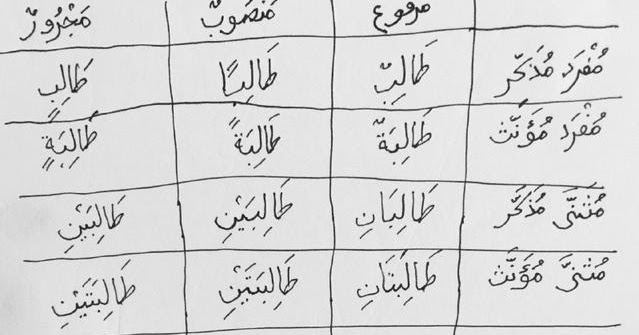 مرفوع مَنصُوبٌ مَجْرُورٌ
مُفْرَد مُذَكَّر طَالِبٌ طَالِبًا طَالِبٍ
مُفْرَد مُؤَنَّث طَالِبَةٌ طَالِبَةً طَالِبَةٍ
مُثَنَّى مُذَكَّر طَالِبَانِ طَالِبَيْنِ طَالِبَيْنِ
مُثَنَّى مُؤَنَّث طَالِبَتَانِ طَالِبَتَيْنِ طَالِبَتَيْنِ